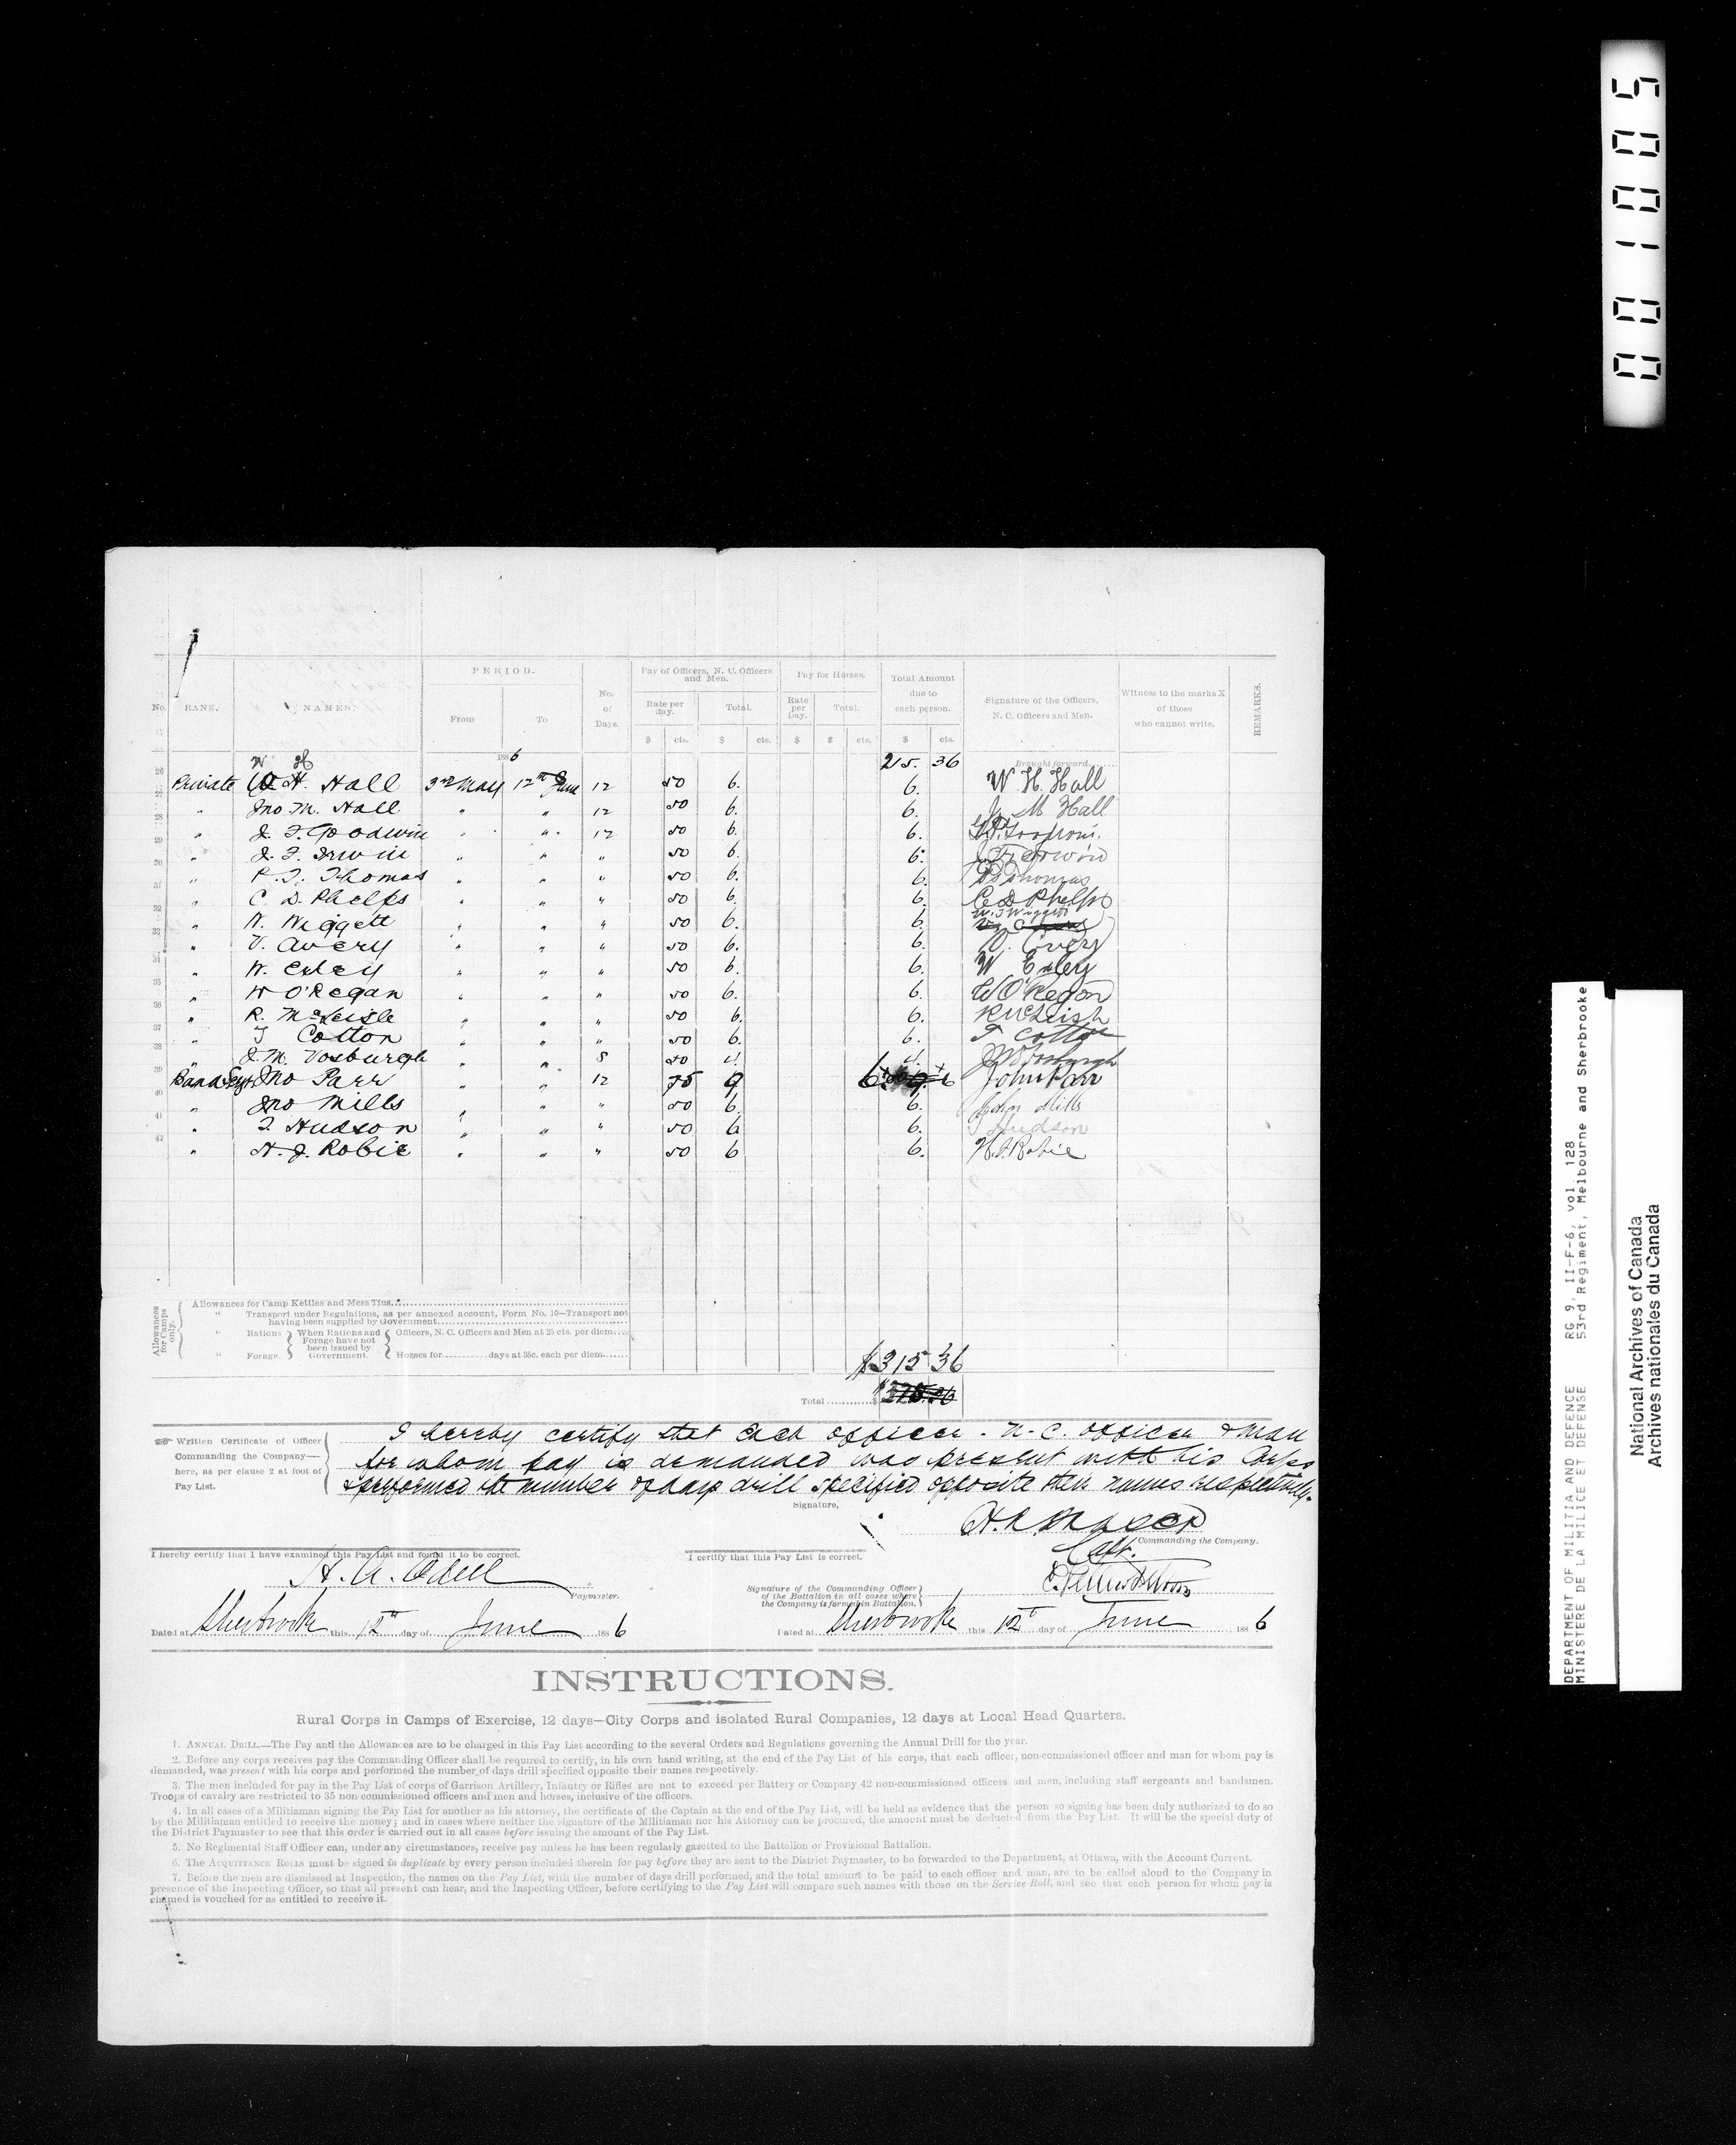 001005
PERIOD.
Pay of Officers, N. C. Officers and Men.
Pay for Horses.
Total Amount due to each person.
No.
RANK.
NAMES.
From
To
No. of Days.
Rate per day.
Total.
Rate per Day.
Total.
Signature of the Officers, N. C. Officers and Men.
Witness to the marks X of those who cannot write.
REMARKS.
$ cts. $ cts. $ $ cts. $ cts.
W H 1886 215. 36 Brought forward
26 Private H. Hall 3rd May 12th June 12 50 6. 6. W. H. Hall
27 " Jno M. Hall " " 12 50 6. 6. M Hall
28 " J. F. Goodwin " " 12 50 6. 6.
29 " J. F. Irwin " " " 50 6. 6. J F Irwin
30 " P. T. Thomas " " " 50 6. 6. Thomas
31 " C. D. Phelps " " " 50 6. 6. C D Phelps
32 " W. Wiggett " " " 50 6. 6. W. J Wiggett
33 " V. Avery " " " 50 6. 6. V. Avery
34 " W. Exley " " " 50 6. 6. W Exley
35 " W O'Regan " " " 50 6. 6. W O'Regan
36 " R. McLeish " " " 50 6. 6. R McLeish
37 " T Cotton " " " 50 6. 6. T Cotton
38 " J. M. Vosburgh " " 8 50 4. 4. J M Vosburgh
39 Band Sergt Jno Parr " " 12 75 9 6. John Parr
40 " Jno Mills " " " 50 6. 6. John Mills
41 " T. Hudson " " " 50 6 6. T Hudson
42 " H. J. Robie " " " 50 6 6. H. J. Robie
Allowances for Camps only.
Allowances for Camp Kettles and Mess Tins
" Transport under Regulations, as per annexed account, Form No. 10—Transport not having been supplied by Government
" Rations } When Rations and Forage have not been issued by Government. { Officers, N. C. Officers and Men at 25 cts. per diem
" Forage. Horses for days at 35c. each per diem
$315 36
Total $
Written Certificate of Officer Commanding the Company—here, as per clause 2 at foot of Pay List.
I hereby certify that each officer. N. C. officer & man
for whom pay is demanded was present with his Corps
& performed the number of days drill specified opposite their names respectively.
Signature,
Capt.
Commanding the Company.
I hereby certify that I have examined this Pay List and found it to be correct.
I certify that this Pay List is correct.
H. A. Odell
Paymaster.
Signature of the Commanding Officer of the Battalion in all cases where the Company is formed in Battalion.
Dated at Sherbrooke this 12th day of June 1886
Dated at Sherbrooke this 12th day of June 1886
INSTRUCTIONS.
Rural Corps in Camps of Exercise, 12 days—City Corps and isolated Rural Companies, 12 days at Local Head Quarters.
1. ANNUAL DRILL.—The Pay and the Allowances are to be charged in this Pay List according to the several Orders and Regulations governing the Annual Drill for the year.
2. Before any corps receives pay the Commanding Officer shall be required to certify, in his own hand writing, at the end of the Pay List of his corps, that each officer, non-commissioned officer and man for whom pay is
demanded, was present with his corps and performed the number of days drill specified opposite their names respectively.
3. The men included for pay in the Pay List of corps of Garrison Artillery, Infantry or Rifles are not to exceed per Battery or Company 42 non-commissioned officers and men, including staff sergeants and bandsmen.
Troops of cavalry are restricted to 35 non-commissioned officers and men and horses, inclusive of the officers.
4. In all cases of a Militiaman signing the Pay List for another as his attorney, the certificate of the Captain at the end of the Pay List, will be held as evidence that the person so signing has been duly authorized to do so
by the Militiaman entitled to receive the money; and in cases where neither the signature of the Militiaman nor his Attorney can be procured, the amount must be deducted from the Pay List. It will be the special duty of
the District Paymaster to see that this order is carried out in all cases before issuing the amount of the Pay List.
5. No Regimental Staff Officer can, under any circumstances, receive pay unless he has been regularly gazetted to the Battalion or Provisional Battalion.
6. The ACQUITTANCE ROLLS must be signed in duplicate by every person included therein for pay before they are sent to the District Paymaster, to be forwarded to the Department, at Ottawa, with the Account Current.
7. Before the men are dismissed at Inspection, the names on the Pay List, with the number of days drill performed, and the total amount to be paid to each officer and man, are to be called aloud to the Company in
presence of the Inspecting Officer, so that all present can hear, and the Inspecting Officer, before certifying to the Pay List will compare such names with those on the Service Roll, and see that each person for whom pay is
claimed is vouched for as entitled to receive it.
DEPARTMENT OF MILITIA AND DEFENCE RG 9, II-F-6, vol. 128
MINISTERE DE LA MILICE ET DEFENSE 53rd Regiment, Melbourne and Sherbrooke
National Archives of Canada
Archives nationales du Canada